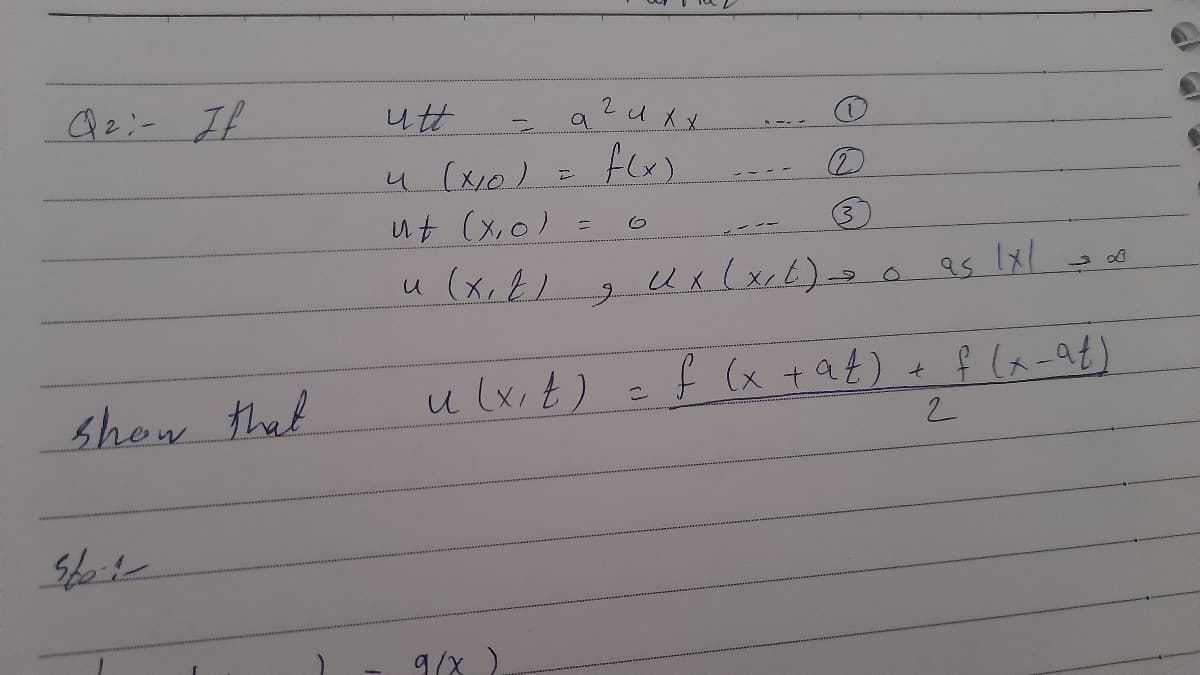 Q2:- If utt = a²uxx ---- ①
u (x,0) = f(x) ---- ②
ut (x,0) = 0 ---- ③
u (x,t) , ux (x,t) → 0 as |x| → ∞
show that u (x,t) = f (x + at) + f (x - at)
2
g(x)